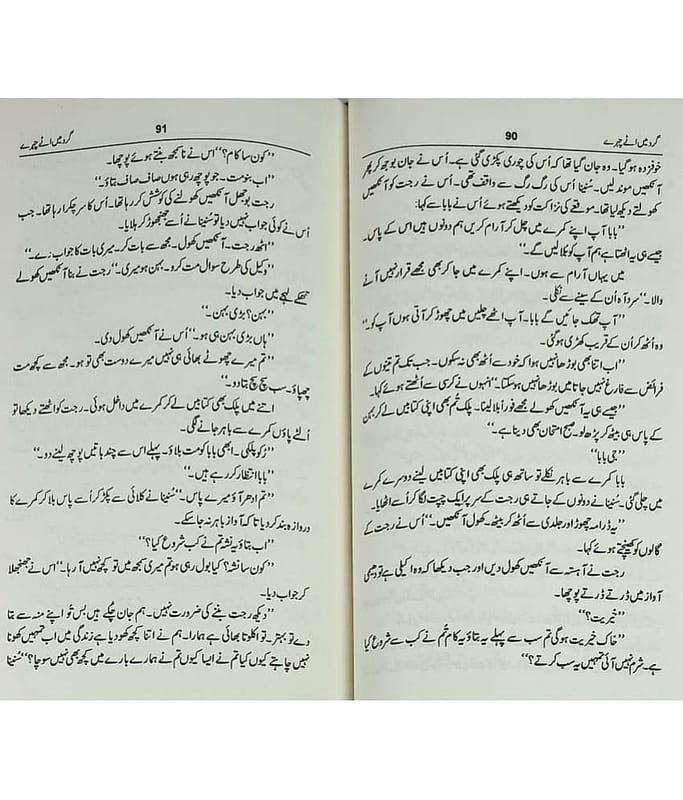 گرد میں اٹے چہرے
90
خوفزدہ ہو گیا۔ وہ جان گیا تھا کہ اُس کی چوری پکڑی گئی ہے۔ اُس نے جان بوجھ کر پھر
آنکھیں موند لیں۔ سُنینا اُس کی رگ رگ سے واقف تھی۔ اُس نے رجت کو آنکھیں
کھولتے دیکھ لیا تھا۔ موقعے کی نزاکت کو دیکھتے ہوئے اُس نے بابا سے کہا:
’’بابا آپ اپنے کمرے میں چل کر آرام کریں ہم دونوں ہیں اس کے پاس۔
جیسے ہی یہ اٹھتا ہے ہم آپ کو بُلا لیں گے۔‘‘
میں یہاں آرام سے ہوں۔ اپنے کمرے میں جا کر بھی مجھے قرار نہیں آنے
والا۔‘‘ سرد آہ اُن کے سینے سے نکلی۔
’’آپ تھک جائیں گے بابا۔ آپ اٹھے چلیں میں چھوڑ کر آتی ہوں آپ کو۔‘‘
وہ اُٹھ کر اُن کے قریب کھڑی ہو گئی۔
’’اب اتنا بھی بوڑھا نہیں ہوا کہ خود سے اُٹھ بھی نہ سکوں۔ جب تک تم تینوں کے
فرائض سے فارغ نہیں جاتا میں بوڑھا نہیں ہو سکتا۔‘‘ انہوں نے کرسی سے اُٹھتے ہوئے کہا۔
’’جیسے ہی یہ آنکھیں کھولے مجھے فوراً بلا لینا۔ پلک تُم بھی اپنی کتابیں لے کر بہن
کے پاس ہی بیٹھ کر پڑھ لو۔ صبح امتحان بھی دینا ہے۔‘‘
’’جی بابا‘‘
بابا کمرے سے باہر نکلے تو ساتھ ہی پلک بھی اپنی کتابیں لینے دوسرے کمرے
میں چلی گئی۔ سُنینا نے دونوں کے جاتے ہی رجت کے سر پر ایک چپت لگا کر اُسے اٹھایا۔
’’یہ ڈرامہ چھوڑ اور جلدی سے اُٹھ کر بیٹھ۔ کھول آنکھیں۔‘‘ اُس نے رجت کے
گالوں کو کھینچتے ہوئے کہا۔
رجت نے آہستہ سے آنکھیں کھول دیں اور جب دیکھا کہ وہ اکیلی ہے تو دھیمی
آواز میں ڈرتے ڈرتے پوچھا۔
’’خیریت؟‘‘
’’خاک خیریت ہو گی تم سب سے پہلے یہ بتاؤ یہ کام تُم نے کب سے شروع کیا
ہے۔ شرم نہیں آئی تمہیں یہ سب کرتے؟‘‘
91
گرد میں اٹے چہرے
’’کون سا کام؟‘‘ اس نے نا سمجھ بنتے ہوئے پوچھا۔
’’اب بنو مت۔ جو پوچھ رہی ہوں صاف صاف بتاؤ۔‘‘
رجت بوجھل آنکھیں کھولنے کی کوشش کر رہا تھا۔ اُس کا سر چکرا رہا تھا۔ جب
اُس نے کوئی جواب نہیں دیا تو سُنینا نے اُسے جھنجھوڑ کر ہلایا۔
’’اٹھ رجت۔ آنکھیں کھول۔ مجھ سے بات کر۔ میری بات کا جواب دے۔‘‘
’’وکیل کی طرح سوال مت کرو۔ بہن ہو میری۔‘‘ رجت نے بنا آنکھیں کھولے
تھکے لہجے میں جواب دیا۔
’’بہن؟ بڑی بہن۔‘‘
’’ہاں بڑی بہن ہی ہو۔‘‘ اُس نے آنکھیں کھول دی۔
’’تم میرے چھوٹے بھائی ہی نہیں میرے دوست بھی تو ہو۔ مجھ سے کچھ مت
چھپاؤ۔ سب سچ سچ بتا دو۔‘‘
اتنے میں پلک بھی کتابیں لے کر کمرے میں داخل ہوئی۔ رجت کو اٹھتے دیکھا تو
اُلٹے پاؤں کمرے سے باہر جانے لگی۔
’’رُکو پلکی۔ ابھی بابا کو مت بلاؤ۔ پہلے اس سے چند باتیں پوچھ لینے دو۔‘‘
’’بابا انتظار کر رہے ہیں۔‘‘
’’تم ادھر آؤ میرے پاس۔‘‘ سُنینا نے کلائی سے پکڑ کر اُسے پاس بلا کر کمرے کا
دروازہ بند کر دیا تا کہ آواز باہر نہ جا سکے۔
’’اب بتاؤ یہ نشہ تم نے کب شروع کیا؟‘‘
’’کون سا نشہ؟ کیا بول رہی ہو تم میری سمجھ میں تو کچھ نہیں آ رہا۔‘‘ اس نے جھنجھلا
کر جواب دیا۔
’’دیکھ رجت بننے کی ضرورت نہیں۔ ہم جان چُکے ہیں بس تُو اپنے منہ سے بتا
دے تو بہتر۔ تو اکلوتا بھائی ہے ہمارا۔ ہم نے اتنا کچھ کھو دیا ہے زندگی میں اب تمہیں کھونا
نہیں چاہتے کیوں کیا تم نے ایسا کیوں تم نے ہمارے بارے میں کچھ بھی نہیں سوچا؟‘‘ سُنینا